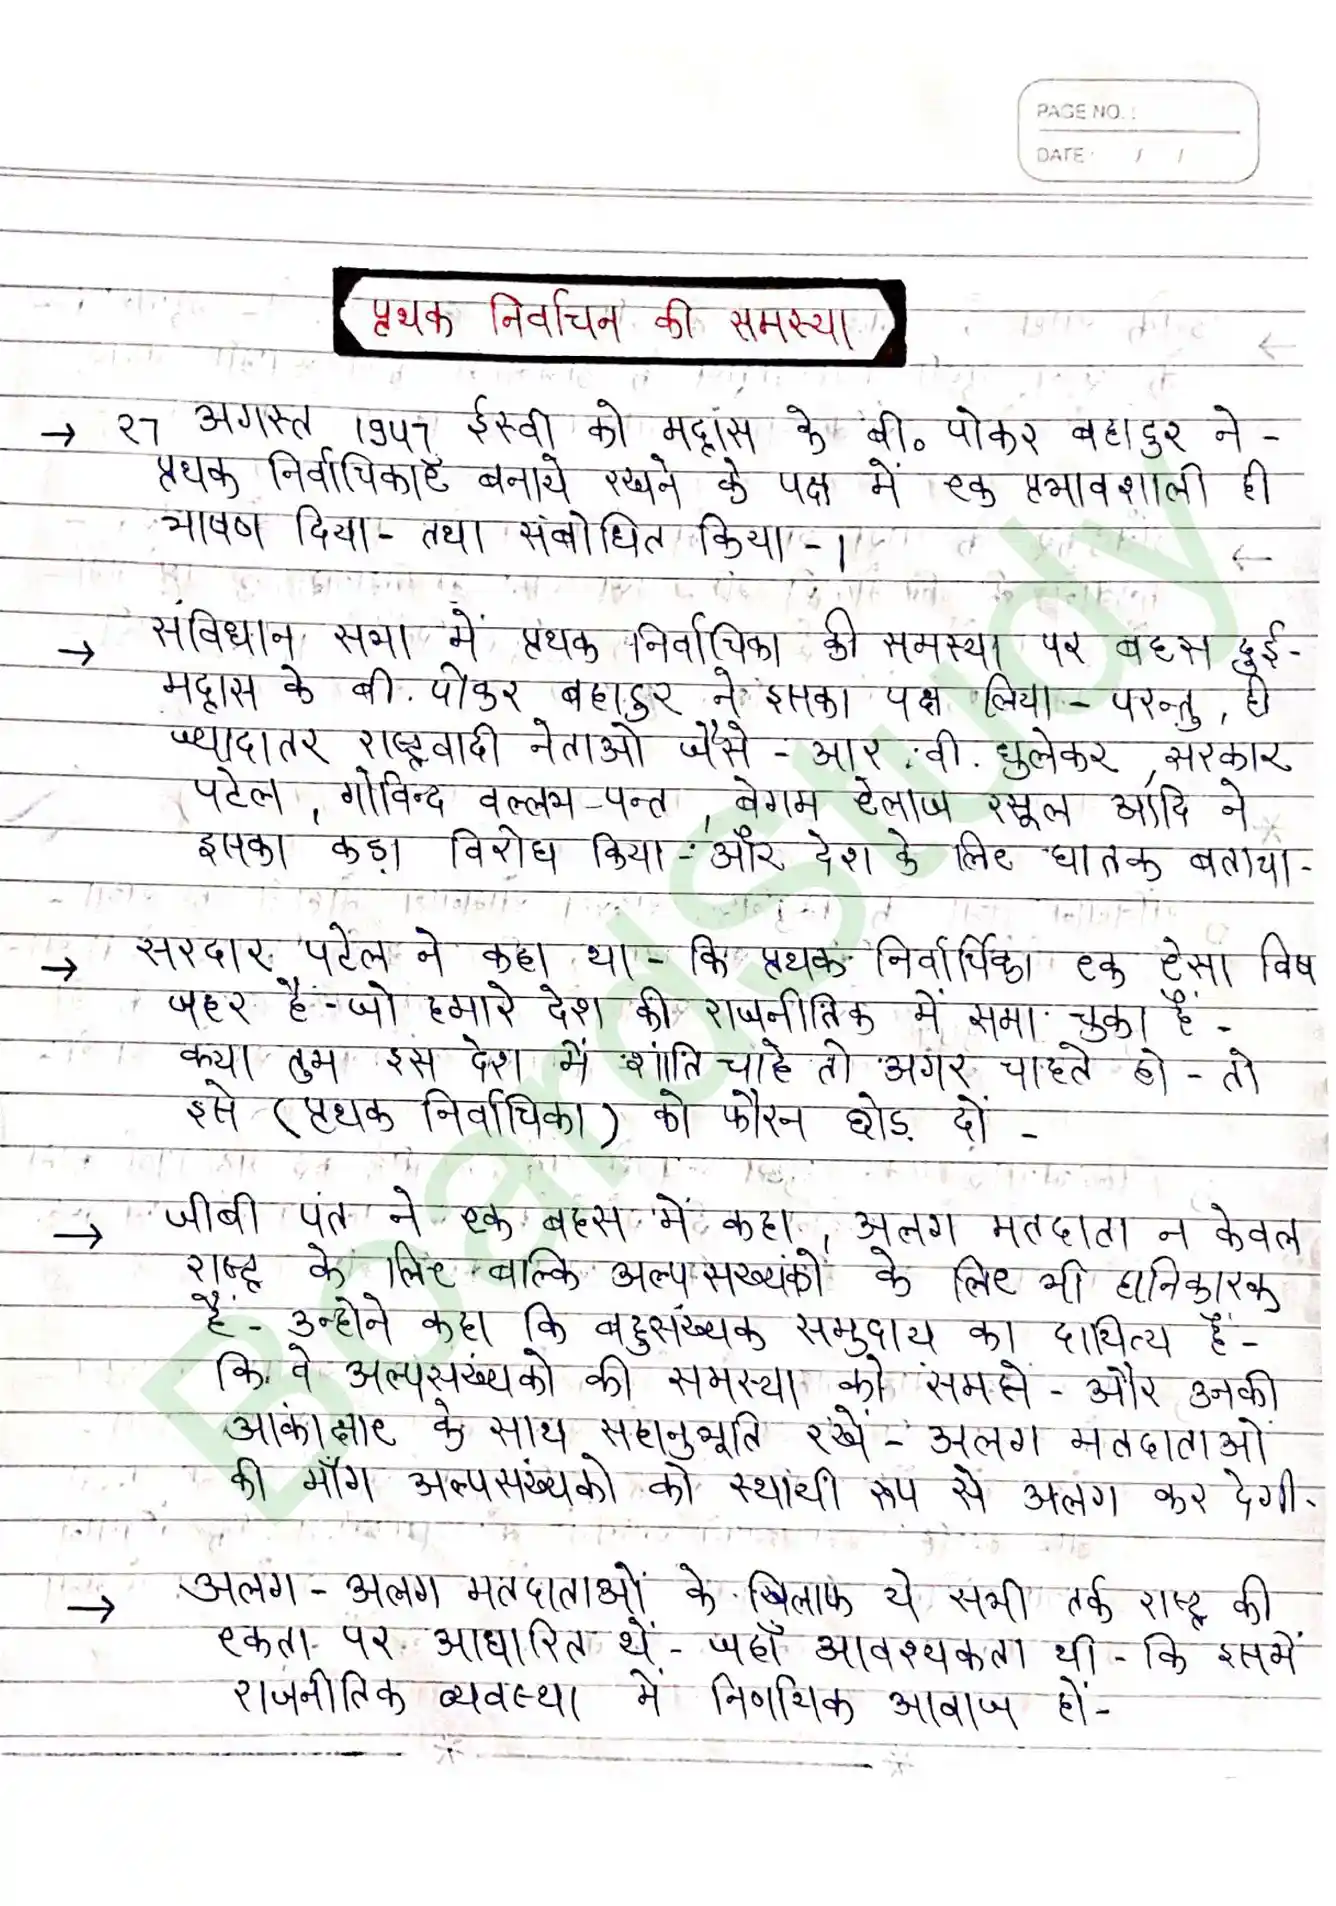 PAGE NO. :
DATE : / /
पृथक निर्वाचन की समस्या
→ 27 अगस्त 1947 ईस्वी को मद्रास के बी० पोकर बहादुर ने -
पृथक निर्वाचिकाएँ बनाये रखने के पक्ष में एक प्रभावशाली ही
भाषण दिया - तथा संबोधित किया - ।
→ संविधान सभा में पृथक निर्वाचिका की समस्या पर बहस हुई -
मद्रास के बी. पोकर बहादुर ने इसका पक्ष लिया - परन्तु, ही
ज्यादातर राष्ट्रवादी नेताओं जैसे - आर. वी. धुलेकर, सरकार
पटेल, गोविन्द वल्लभ पन्त, बेगम ऐलाज रसूल आदि ने
इसका कड़ा विरोध किया - और देश के लिए घातक बताया -
→ सरदार पटेल ने कहा था - कि पृथक निर्वार्चिका एक ऐसा विष
जहर हैं - जो हमारे देश की राजनीतिक में समा चुका हैं -
क्या तुम इस देश में शांति चाहे तो अगर चाहते हो - तो
इसे (पृथक निर्वाचिका) को फौरन छोड़ दों -
→ जीबी पंत ने एक बहस में कहा, अलग मतदाता न केवल
राष्ट्र के लिए बाल्कि अल्पसख्यंकों के लिए भी हानिकारक
हैं - उन्होने कहा कि बहुसंख्यक समुदाय का दायित्य हैं -
कि वे अल्पसख्यंको की समस्या को समझे - और उनकी
आकांक्षाए के साथ सहानुभूति रखें - अलग मतदाताओं
की माँग अल्पसख्यंको को स्थायी रूप से अलग कर देगी -
→ अलग - अलग मतदाताओं के खिलाफ ये सभी तर्क राष्ट्र की
एकता पर आधारित थें - जहाँ आवश्यकता थी - कि इसमें
राजनीतिक व्यवस्था में निणयिक आवाज हों -
BoardStudy